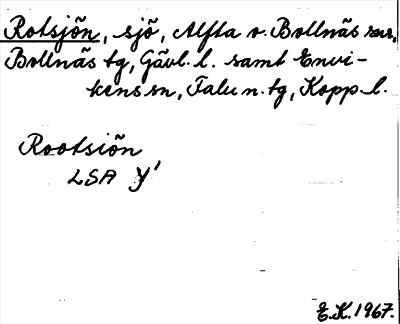 Rotsjön, sjö, Alfta o. Bollnäs snr,
Bollnäs tg, Gävl. l. samt Envi-
kens sn, Falu n. tg, Kopp. l.
Rootsiön
LSA Y'
E.K. 1967.